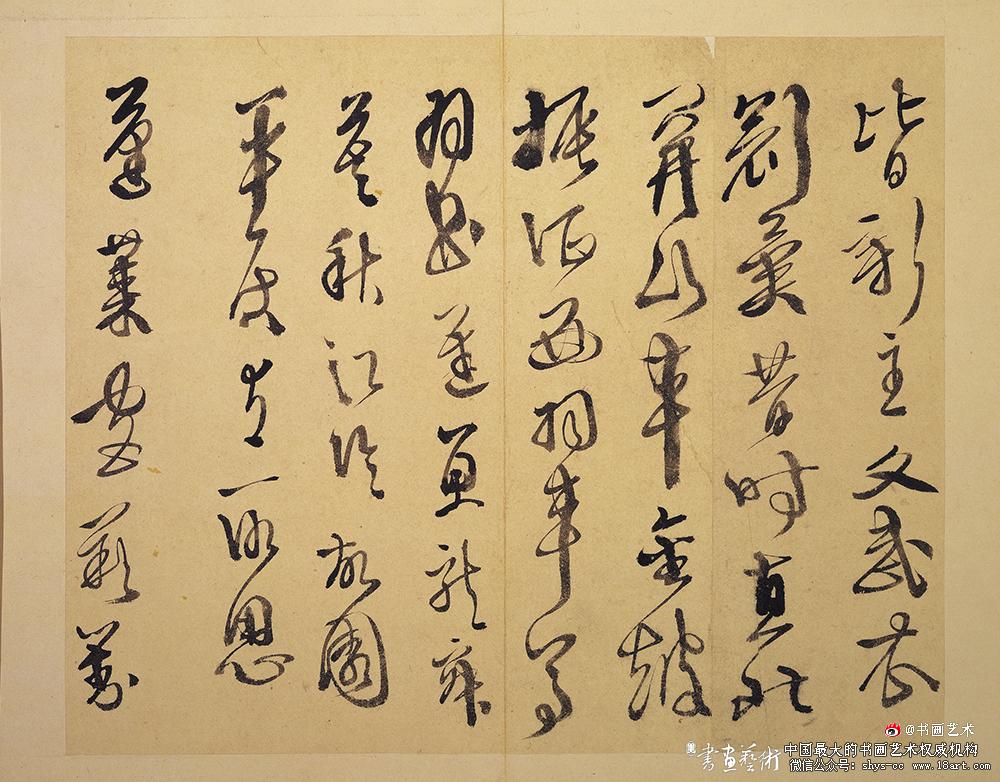 皆新主文武衣
冠異昔時直北
關山車金鼓
振征西羽車馬
羽書遲魚龍寂
寞秋江冷故國
平居有所思
蓬萊宮
@书画艺术
書画藝術
中国最大的书画艺术权威机构
微信公众号: shys-cc www.18art.com